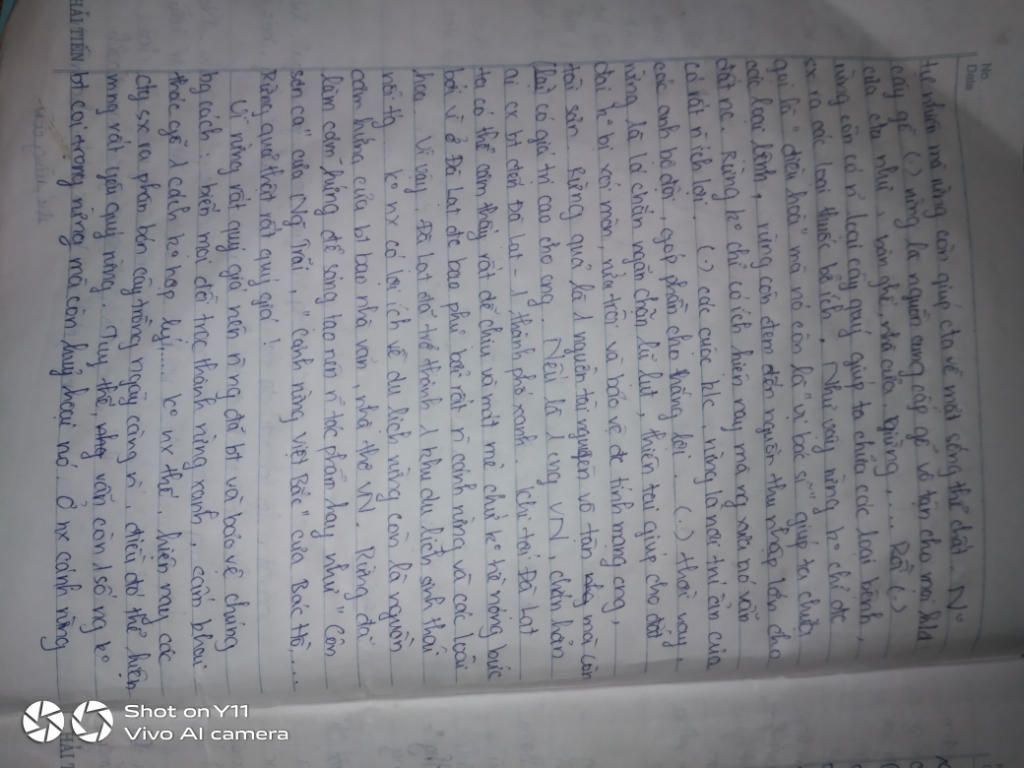 No.
Date
tự nhiên mà rừng còn giúp cta về mặt sống thể chất. N°
cây gỗ (.) rừng là nguồn cung cấp gỗ vô tận cho mọi
của cta như, bàn ghế, nhà cửa, giường, ... Rồi (.)
rừng còn có n° loại cây quý giúp ta chữa các loại bệnh,
sx ra các loại thuốc bổ ích. Như vậy rừng k° chỉ đc
gọi là "điều hoà" mà nó còn là "vị bác sĩ" giúp ta chữa
các loại bệnh, rừng còn đem đến nguồn thu nhập lớn cho
đất nc. Rừng k° chỉ có ích hiện nay mà ng xưa nó vẫn
có rất n ích lợi. (.) các cuộc k/c, rừng là nơi trú ẩn của
các anh bộ đội, góp phần cho thắng lợi. (.) thời nay,
rừng là lá chắn ngăn chặn lũ lụt, thiên tai giúp cho đất
đai k° bị xói mòn, nứa trôi và bảo vệ đc tính mạng con,
tài sản. Rừng quả là 1 nguồn tài nguyên vô tận mà còn
có giá trị cao cho ng. Nếu là 1 ng VN, chắn hẳn
ai cx bt đến Đà Lạt - 1 thành phố xanh. Khi tới Đà Lạt
ta có thể cảm thấy rất dễ chịu và mát mẻ chứ k° hề nóng bức
bởi vì ở Đà Lạt đc bao phủ bởi rất n cánh rừng và các loài
hoa. Vì vậy, Đà Lạt đã trở thành 1 khu du lịch sinh thái
nổi tg. k° nx có lợi ích về du lịch rừng còn là nguồn
cảm hứng của bt bao nhà văn, nhà thơ VN. Rừng đã
làm cảm hứng để sáng tạo nên n tác phẩm hay như "Côn
sơn ca" của Ng Trãi, "Cảnh rừng Việt Bắc" của Bác Hồ,...
Rừng quả thật rất quý giá!
Vì rừng rất quý giá nên n ng đã bt và bảo vệ chúng
bằng cách: biến mọi đồi trọc thành rừng xanh, cấm khai
thác gỗ 1 cách k° hợp lý,... k° nx thế, hiện nay các
cty sx ra phân bón cây trồng ngày càng n, điều đó thể hiện
mng rất yêu quý rừng. Tuy thế, vẫn còn 1 số ng k°
bt coi trọng rừng mà còn huỷ hoại nó. Ở nx cánh rừng
HẢI TIẾN
Shot on Y11
Vivo AI camera